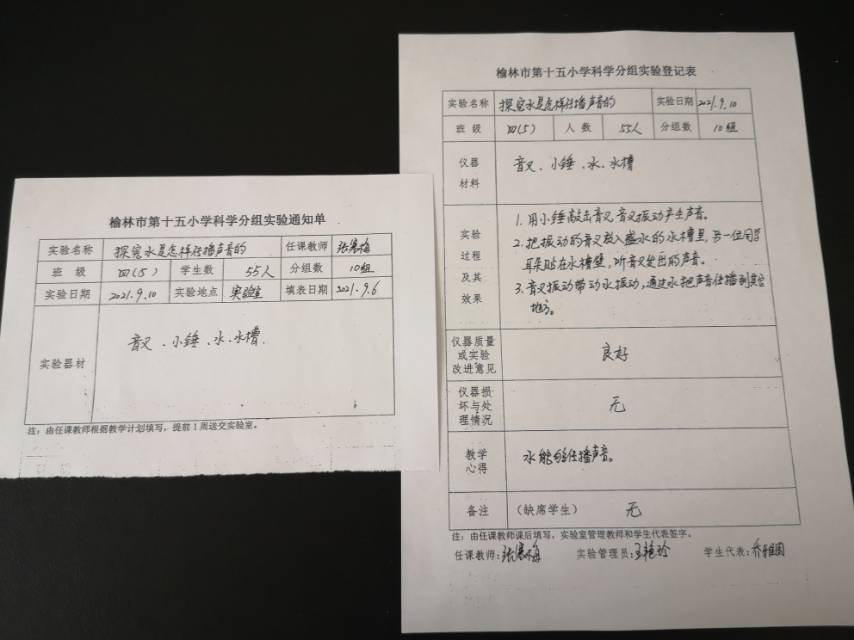 榆林市第十五小学科学分组实验通知单
实验名称 探究水是怎样传播声音的 任课教师 张寒梅
班 级 四(5) 学生数 55人 分组数 10组
实验日期 2021.9.10 实验地点 实验室 填表日期 2021.9.6
实验器材 音叉、小锤、水、水槽.
注：由任课教师根据教学计划填写，提前1周送交实验室。
榆林市第十五小学科学分组实验登记表
实验名称 探究水是怎样传播声音的 实验日期 2021.9.10
班 级 四(5) 人 数 55人 分组数 10组
仪器
材料
音叉、小锤、水、水槽
实验
过程
及其
效果
1. 用小锤敲击音叉,音叉振动产生声音。
2. 把振动的音叉放入盛水的水槽里,另一位同学
耳朵贴在水槽壁,听音叉发出的声音。
3. 音叉振动带动水振动,通过水把声音传播到其它
地方。
仪器质量
或实验
改进意见
良好
仪器损
坏与处
理情况
无
教学
心得
水能够传播声音。
备注 (缺席学生) 无
注：由任课教师课后填写，实验室管理教师和学生代表签字。
任课教师:张寒梅 实验管理员:王艳玲 学生代表:乔